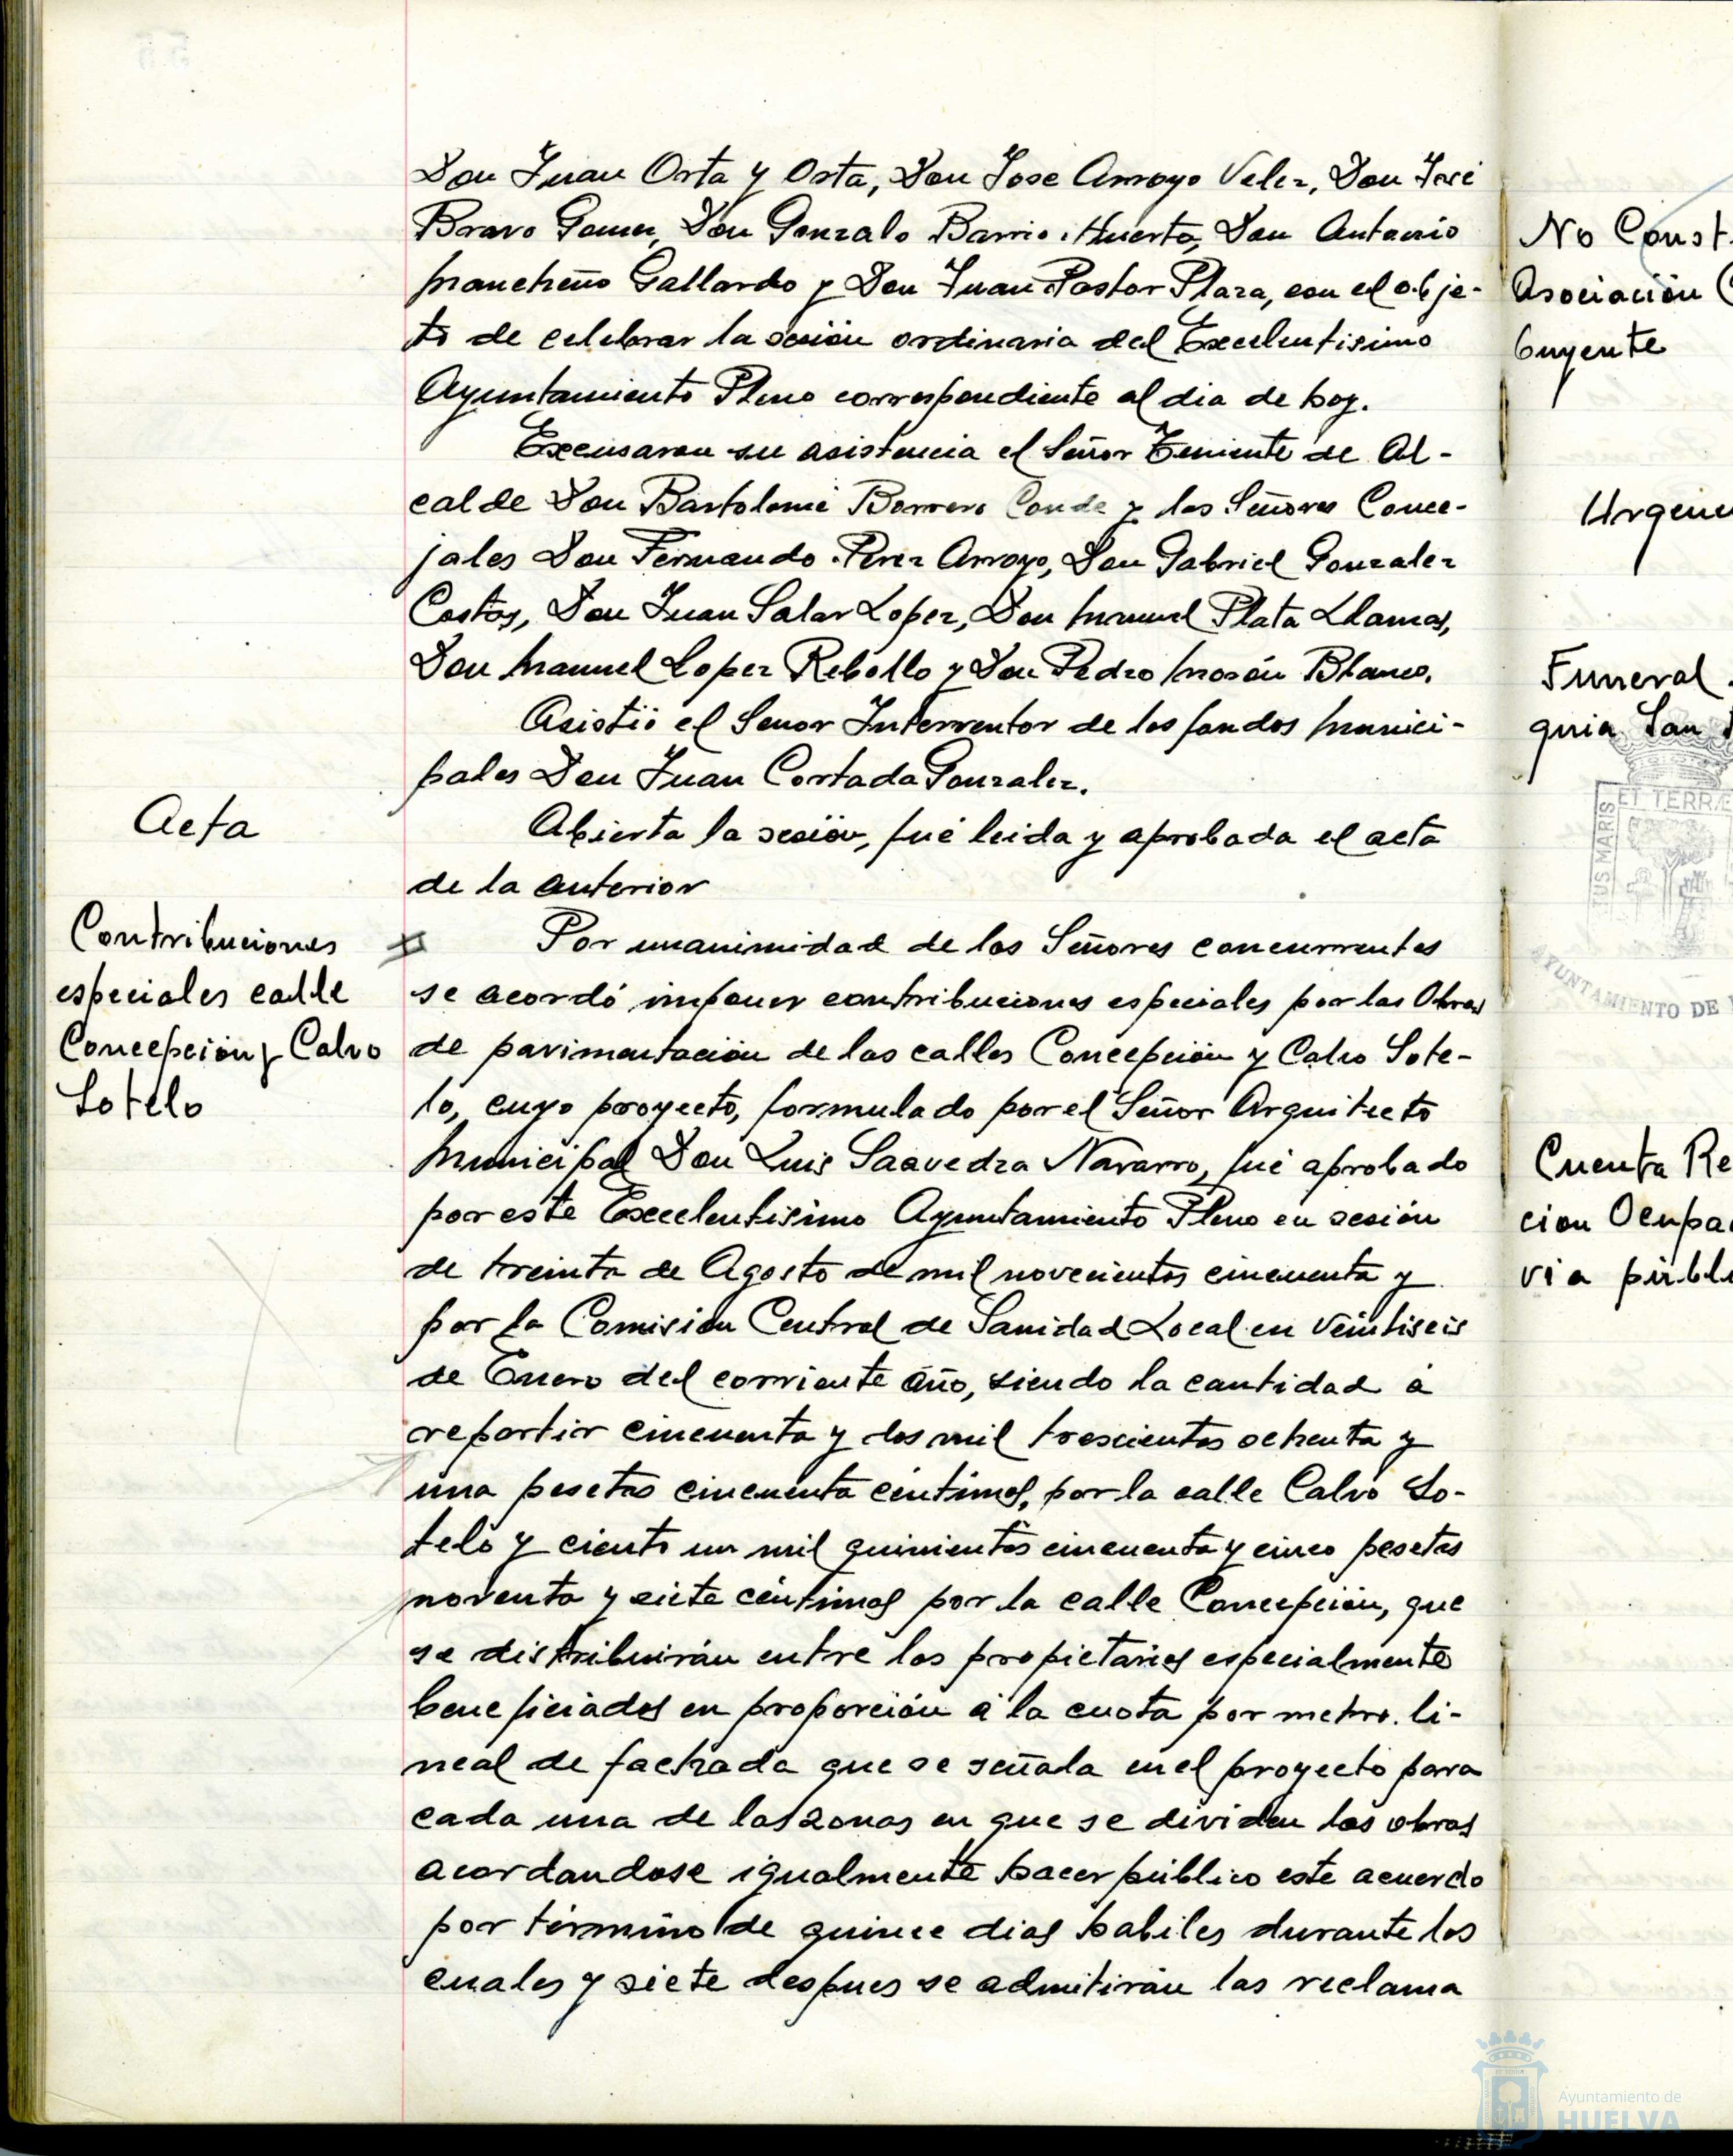 Don Juan Orta y Orta, Don Jose Arroyo Velez, Don José
Bravo Gomez, Don Gonzalo Barrio Huerta, Don Antonio
Mancheño Gallardo y Don Juan Pastor Plaza, con el obje-
to de celebrar la sesión ordinaria del Excelentisimo
Ayuntamiento Pleno correspondiente al dia de hoy.
Excusaron su asistencia el Señor Teniente de Al-
calde Don Bartolomé Borrero Conde y los Señores Conce-
jales Don Fernando Perez Arroyo, Don Gabriel Gonzalez
Costas, Don Juan Salas Lopez, Don Manuel Plata Llamas,
Don Manuel Lopez Rebollo y Don Pedro Morón Blanco.
Asistió el Senor Interventor de los fondos Munici-
pales Don Juan Cortada Gonzalez.
Acta
Abierta la sesión, fué leida y aprobada el acta
de la anterior
Contribuciones
especiales calle
Concepción y Calvo
Sotelo
Por unanimidad de los Señores concurrentes
se acordó imponer contribuciones especiales por las Obras
de pavimentación de las calles Concepción y Calvo Sote-
lo, cuyo proyecto, formulado por el Señor Arquitecto
Municipal Don Luis Saavedra Navarro, fué aprobado
por este Excelentisimo Ayuntamiento Pleno en sesión
de treinta de Agosto de mil novecientos cincuenta y
por la Comisión Central de Sanidad Local en Veintiseis
de Enero del corriente año, siendo la cantidad a
repartir cincuenta y dos mil trescientos ochenta y
una pesetas cincuenta céntimos, por la calle Calvo So-
telo y ciento un mil quinientos cincuenta y cinco pesetas
noventa y siete céntimos por la calle Concepción, que
se distribuirán entre los propietarios especialmente
beneficiados en proporción á la cuota por metro li-
neal de fachada que se señala en el proyecto para
cada una de las zonas en que se dividen las obras
acordandose igualmente hacer público este acuerdo
por término de quince dias habiles durante los
cuales y siete despues se admitirán las reclama
No Const.
Asociación
buyente
Funeral
quia San
ET TERRÆ
TUS MARIS
AYUNTAMIENTO DE
Cuenta Re
cion Ocupa
via públi
Ayuntamiento de
HUELVA